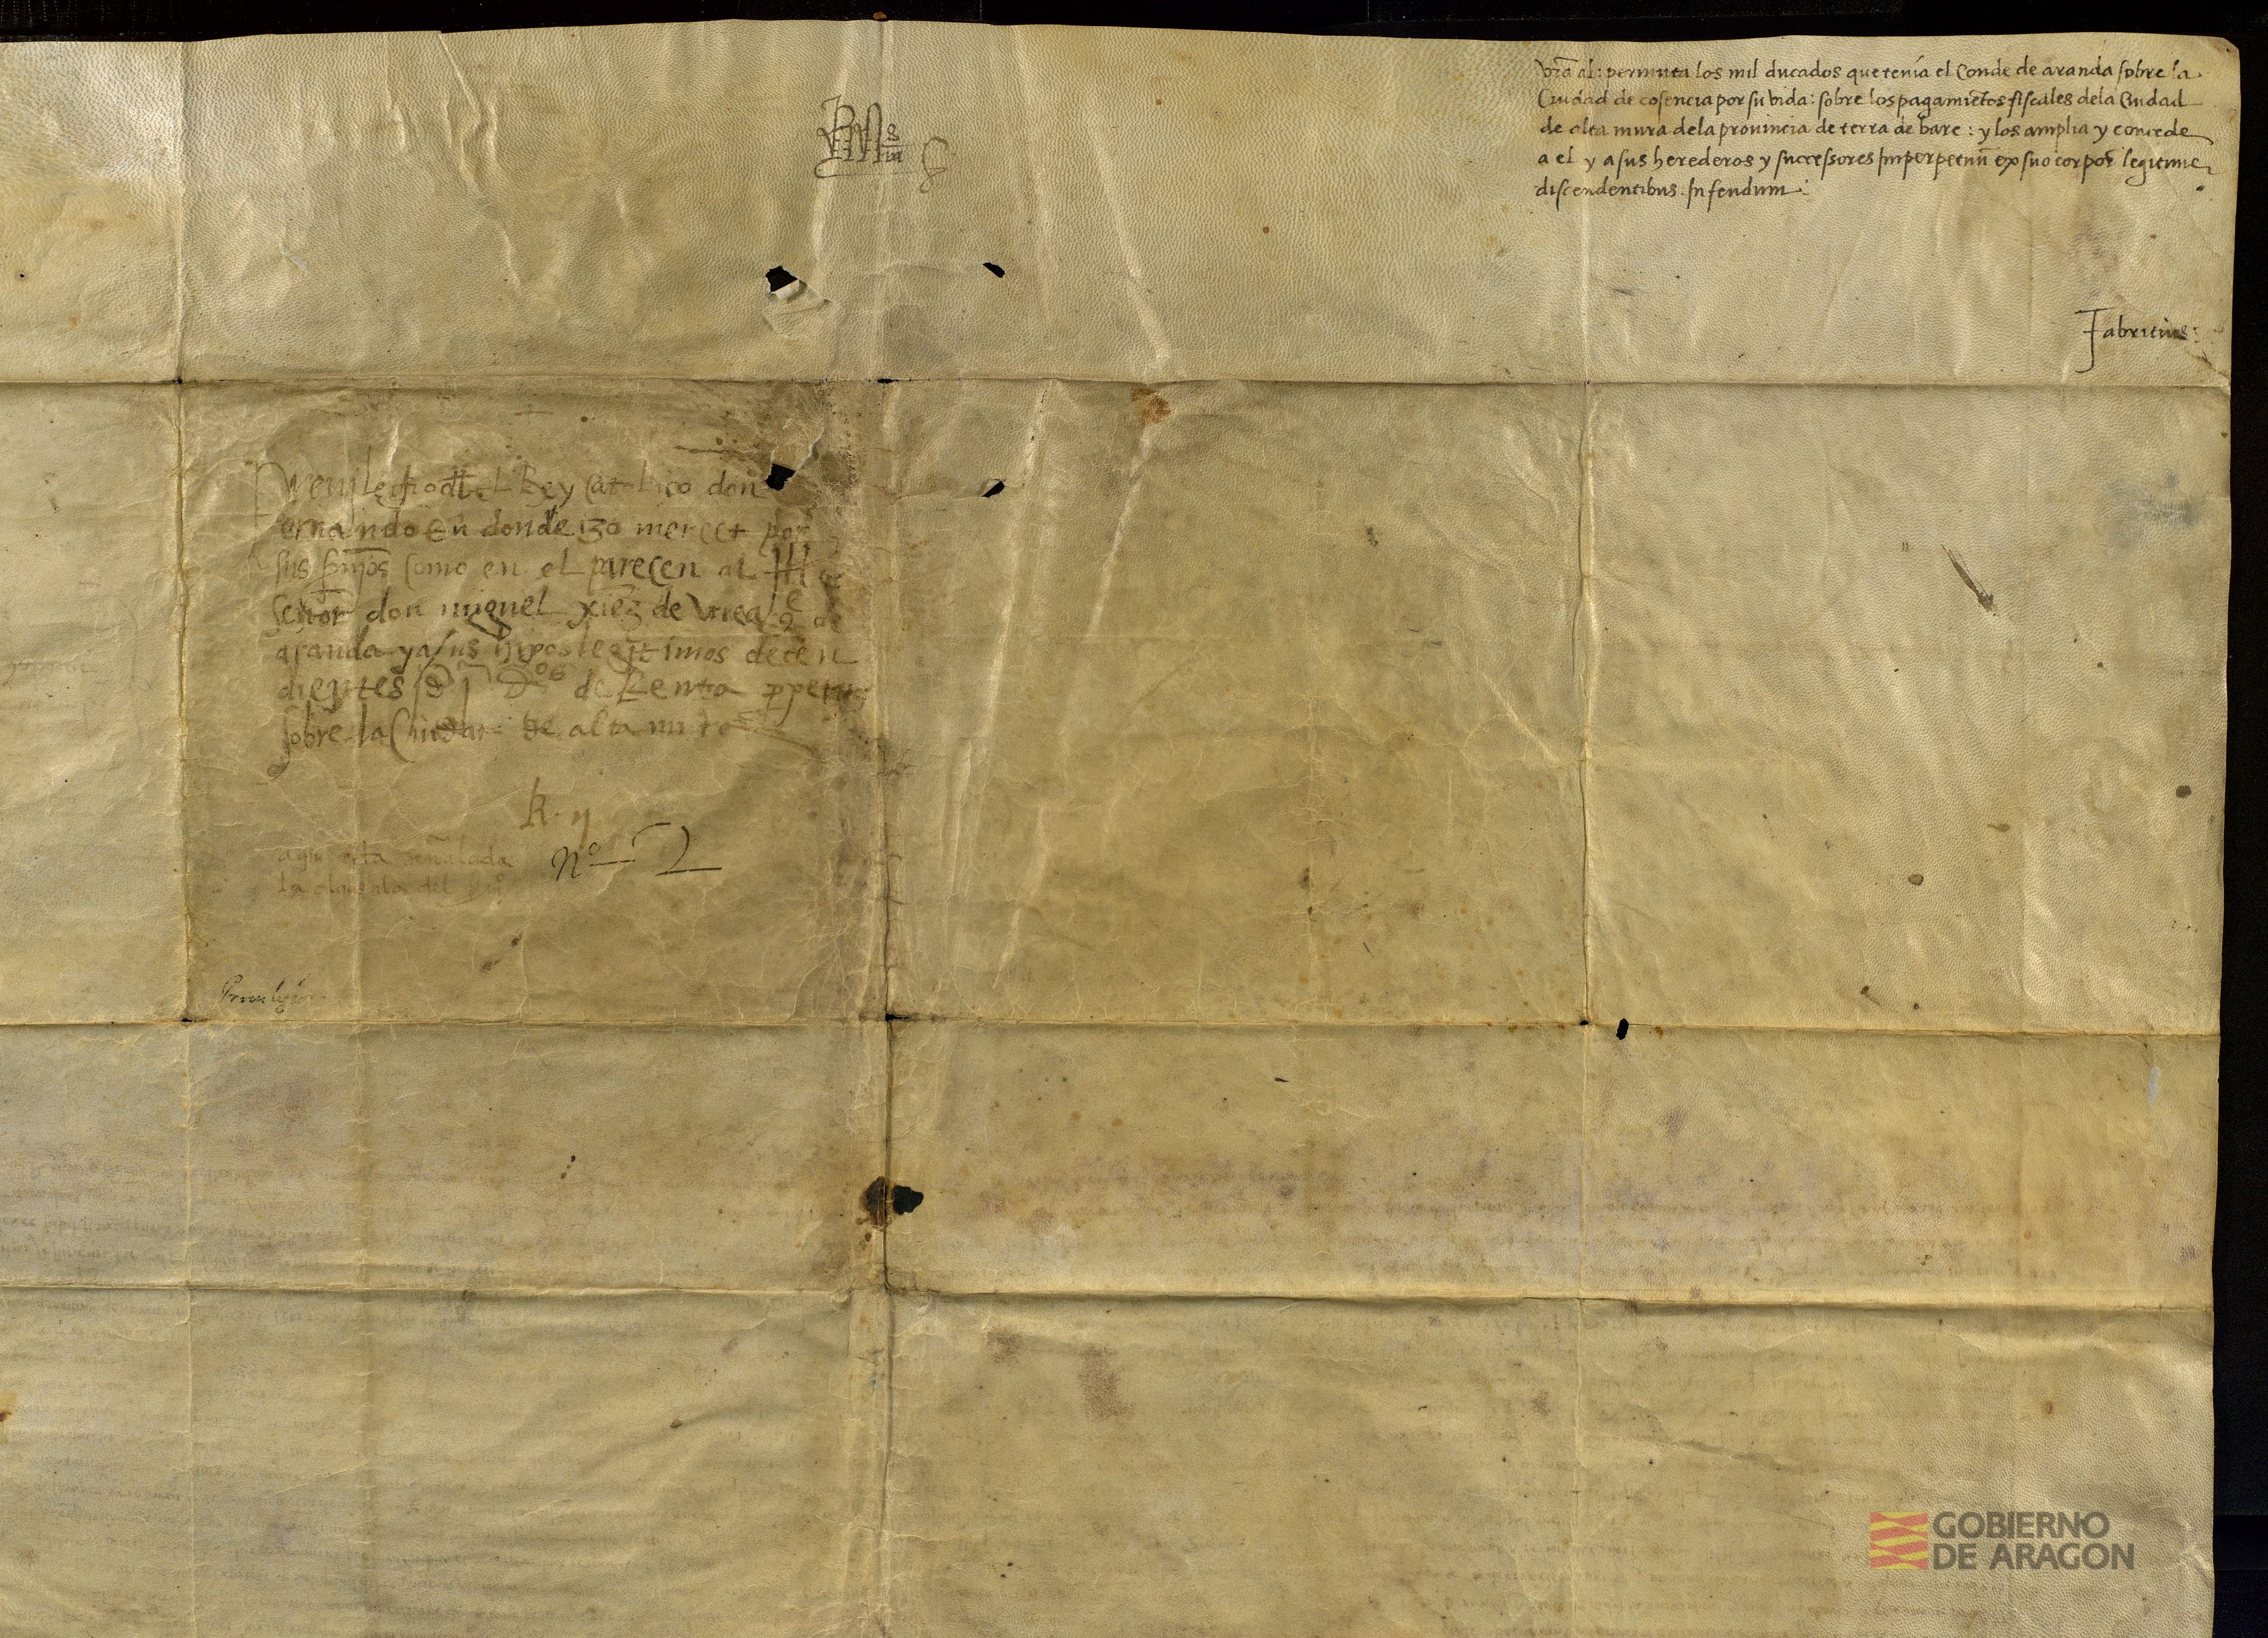 vra al: permuta los mil ducados que tenia el Conde de aranda sobre la
Ciudad de cosencia por su vida: sobre los pagamiētos fiscales dela Ciudad
de alta mura dela prouincia de terra de bare: y los amplia y concede
a el y a sus herederos y successores Imperpetuū ex suo corpore legitime
discendentibus. In feudum:
Fabritius:
Rey Catolico don
ernando en donde izo mercet por
sus como en el parecen al
señor don miguel xiēz de vrrea de
aranda y a sus legitimos decen
dientes de Renta
sobre la de alta mura
R. y
aqui esta señalada
la del
Nº 2
GOBIERNO
DE ARAGON